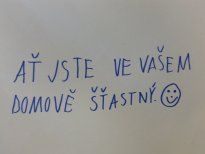 AŤ JSTE VE VAŠEM
DOMOVĚ ŠŤASTNÝ.